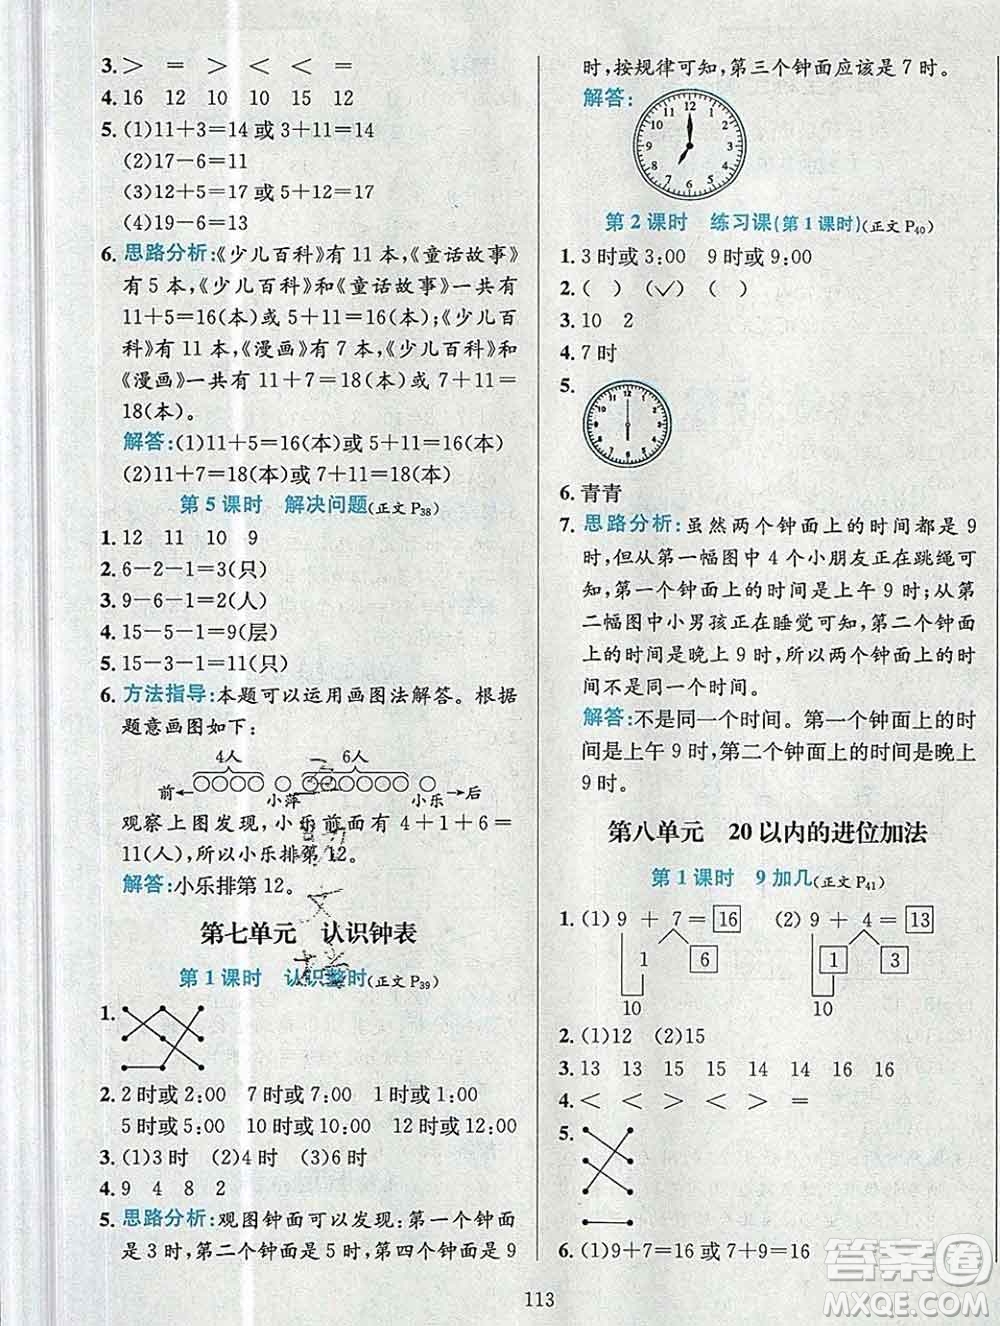 3. > = > < < = >
4. 16 12 10 10 15 12
5. (1)11+3=14 或 3+11=14
(2)17-6=11
(3)12+5=17 或 5+12=17
(4)19-6=13
6. 思路分析:《少儿百科》有 11 本,《童话故事》
有 5 本,《少儿百科》和《童话故事》一共有
11+5=16(本)或 5+11=16(本);《少儿百
科》有 11 本,《漫画》有 7 本,《少儿百科》和
《漫画》一共有 11+7=18(本)或 7+11=
18(本)。
解答:(1)11+5=16(本)或 5+11=16(本)
(2)11+7=18(本)或 7+11=18(本)
第 5 课时 解决问题(正文 P38)
1. 12 11 10 9
2. 6-2-1=3(只)
3. 9-6-1=2(人)
4. 15-5-1=9(层)
5. 15-3-1=11(只)
6. 方法指导:本题可以运用画图法解答。根据
题意画图如下:
4人 6人
前 小萍 小乐 后
观察上图发现,小乐前面有 4+1+6=
11(人),所以小乐排第 12。
解答:小乐排第 12。
第七单元 认识钟表
第 1 课时 认识整时(正文 P39)
1.
2. 2 时或 2:00 7 时或 7:00 1 时或 1:00
5 时或 5:00 10 时或 10:00 12 时或 12:00
3. (1)3 时 (2)4 时 (3)10 时
4. 9 4 8 2
5. 思路分析:观图钟面可以发现:第一个钟面
是 3 时,第二个钟面是 5 时,第四个钟面是 9
时,按规律可知,第三个钟面应该是 7 时。
解答:
12 1 2 3 4 5 6 7 8 9 10 11
第 2 课时 练习课(第 1 课时)(正文 P40)
1. 3 时或 3:00 9 时或 9:00
2. ( ) (✓) ( )
3. 10 2
4. 7 时
5.
12 1 2 3 4 5 6 7 8 9 10 11
6. 青青
7. 思路分析:虽然两个钟面上的时间都是 9
时,但从第一幅图中 4 个小朋友正在跳绳可
知,第一个钟面上的时间是上午 9 时;从第
二幅图中小男孩正在睡觉可知,第二个钟面
上的时间是晚上 9 时,所以两个钟面上的时
间不是同一个时间。
解答:不是同一个时间。第一个钟面上的时
间是上午 9 时,第二个钟面上的时间是晚上
9 时。
第八单元 20 以内的进位加法
第 1 课时 9 加几(正文 P41)
1. (1) 9 + 7 = 16 (2) 9 + 4 = 13
1 6 1 3
10 10
2. (1)12 (2)15
3. 13 13 15 16 14 16 16
4. < < > > > =
5.
6. (1)9+7=16 或 7+9=16
113
答案圈
MXQE.COM